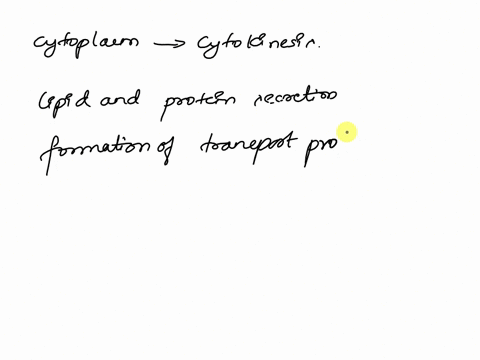 cytoplasm → cytokinesis.
lipid and protein secretion
formation of transport pro